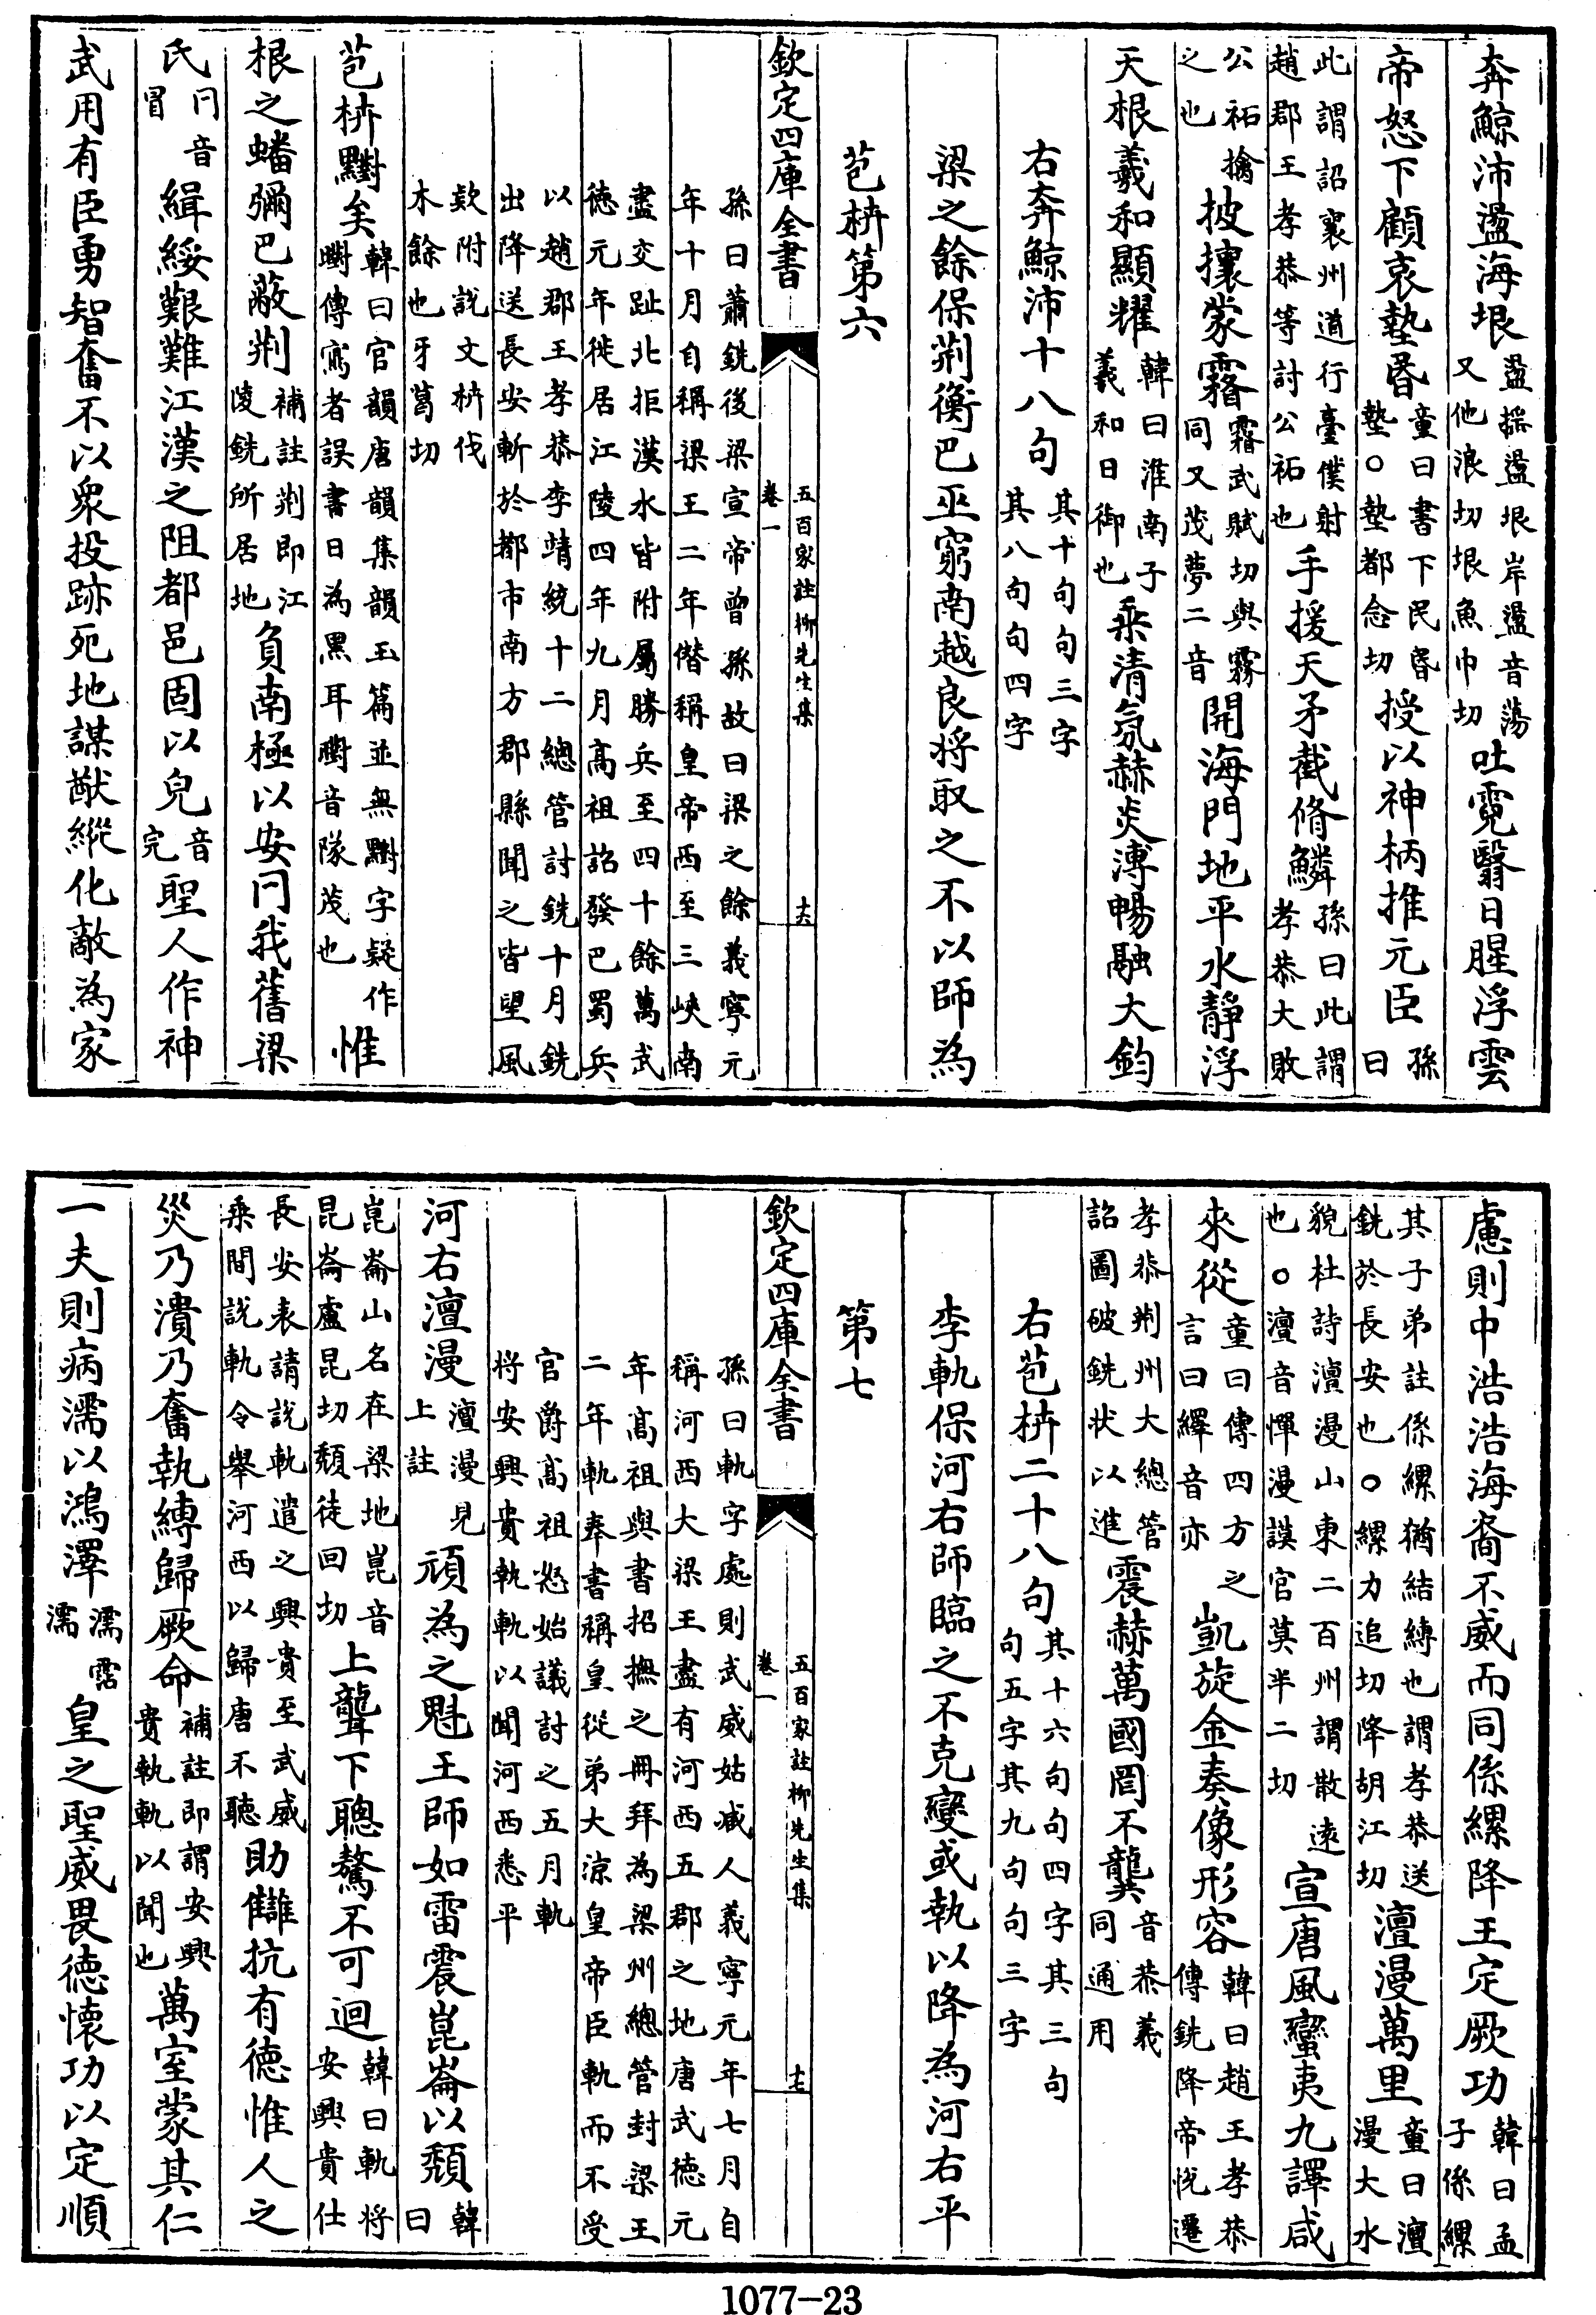 奔鯨沛盪海垠盪搖盪垠岸盪音蕩又他浪切垠魚巾切吐霓翳日腥浮雲
帝怒下顧哀墊昬童曰書下民昬墊○墊都念切授以神柄推元臣孫曰
此謂詔襄州道行臺僕射趙郡王孝恭等討公祏也手援天矛截脩鱗孫曰此謂孝恭大敗
公祏擒之也披攘蒙霿霿武賦切與霧同又茂夢二音開海門地平水靜浮
天根羲和顯耀韓曰淮南子羲和日御也乗清氛赫炎溥暢融大鈞
右奔鯨沛十八句其十句句三字其八句句四字
梁之餘保荆衡巴巫窮南越良将取之不以師為
苞枿第六
欽定四庫全書 五百家註柳先生集 卷一 十六
孫曰蕭銑後梁宣帝曾孫故曰梁之餘義寧元年十月自稱梁王二年僣稱皇帝西至三峽南
盡交趾北拒漢水皆附屬勝兵至四十餘萬武徳元年徙居江陵四年九月髙祖詔發巴蜀兵
以趙郡王孝恭李靖統十二總管討銑十月銑出降送長安斬於都市南方郡縣聞之皆望風
欵附説文枿伐木餘也牙葛切
苞枿矣韓曰官韻唐韻集韻玉篇並無字疑作傳寫者誤書日為黑耳音隊茂也惟
根之蟠彌巴蔽荆補註荆即江陵銑所居地負南極以安冂我舊梁
氏冂音冒緝綏艱難江漢之阻都邑固以皃音完聖人作神
武用有臣勇智奮不以衆投跡死地謀猷縱化敵為家
慮則中浩浩海裔不威而同係縲降王定厥功韓曰孟子係縲
其子弟註係縲猶結縛也謂孝恭送銑於長安也○縲力追切降胡江切澶漫萬里童曰澶漫大水
貌杜詩澶漫山東二百州謂散逺也○澶音憚漫謨官莫半二切宣唐風蠻夷九譯咸
來從童曰傳四方之言曰繹音亦凱旋金奏像形容韓曰趙王孝恭傳銑降帝恱遷
孝恭荆州大總管詔圖破銑状以進震赫萬國罔不龔音恭義同通用
右苞枿二十八句其十六句句四字其三句句五字其九句句三字
李軌保河右師臨之不克變或執以降為河右平
第七
欽定四庫全書 五百家註柳先生集 卷一 十七
孫曰軌字處則武威姑臧人義寧元年七月自稱河西大梁王盡有河西五郡之地唐武徳元
年髙祖與書招撫之冊拜為梁州總管封梁王二年軌奉書稱皇從弟大凉皇帝臣軌而不受
官爵髙祖怒始議討之五月軌将安興貴執軌以聞河西悉平
河右澶漫澶漫見上註頑為之魁王師如雷震崑崙以頽韓曰
崑崙山名在梁地崑音昆崙盧昆切頽徒回切上聾下聰驁不可迴韓曰軌将安興貴仕
長安表請説軌遣之興貴至武威乗間説軌令舉河西以歸唐不聽助讎抗有徳惟人之
災乃潰乃奮執縛歸厥命補註即謂安興貴執軌以聞也萬室蒙其仁
一夫則病濡以鴻澤濡霑濡皇之聖威畏徳懐功以定順
1077-23